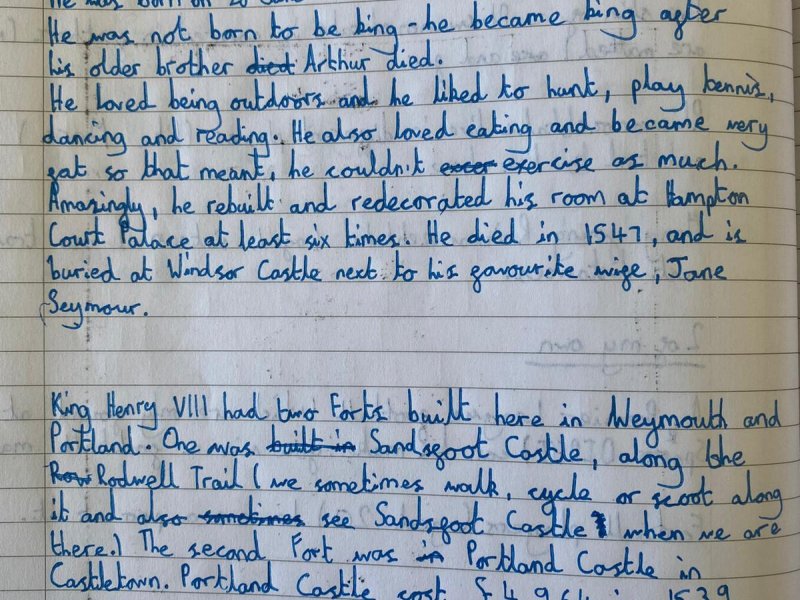 He was born on 28 June
He was not born to be king - he became king after
his older brother died Arthur died.
He loved being outdoors and he liked to hunt, play tennis,
dancing and reading. He also loved eating and became very
fat so that meant, he couldn't excer exercise as much.
Amazingly, he rebuilt and redecorated his room at Hampton
Court Palace at least six times. He died in 1547, and is
buried at Windsor Castle next to his favourite wife, Jane
Seymour.
King Henry VIII had two Forts built here in Weymouth and
Portland. One was built in Sandsfoot Castle, along the
Row Rodwell Trail (we sometimes walk, cycle or scoot along
it and also sometimes see Sandsfoot Castle when we are
there.) The second Fort was in Portland Castle in
Castletown. Portland Castle cost £4,964 in 1539